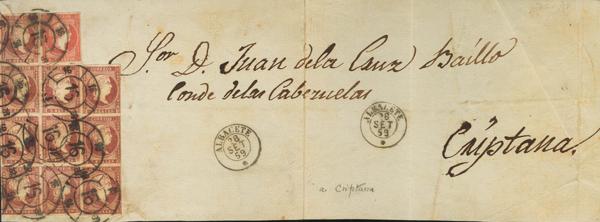 Sor. D. Juan de la Cruz Baíllo
Conde de las Cabezuelas
Criptana.
ALBACETE
28
SET
59
ALBACETE
28
SET
59
a Criptana